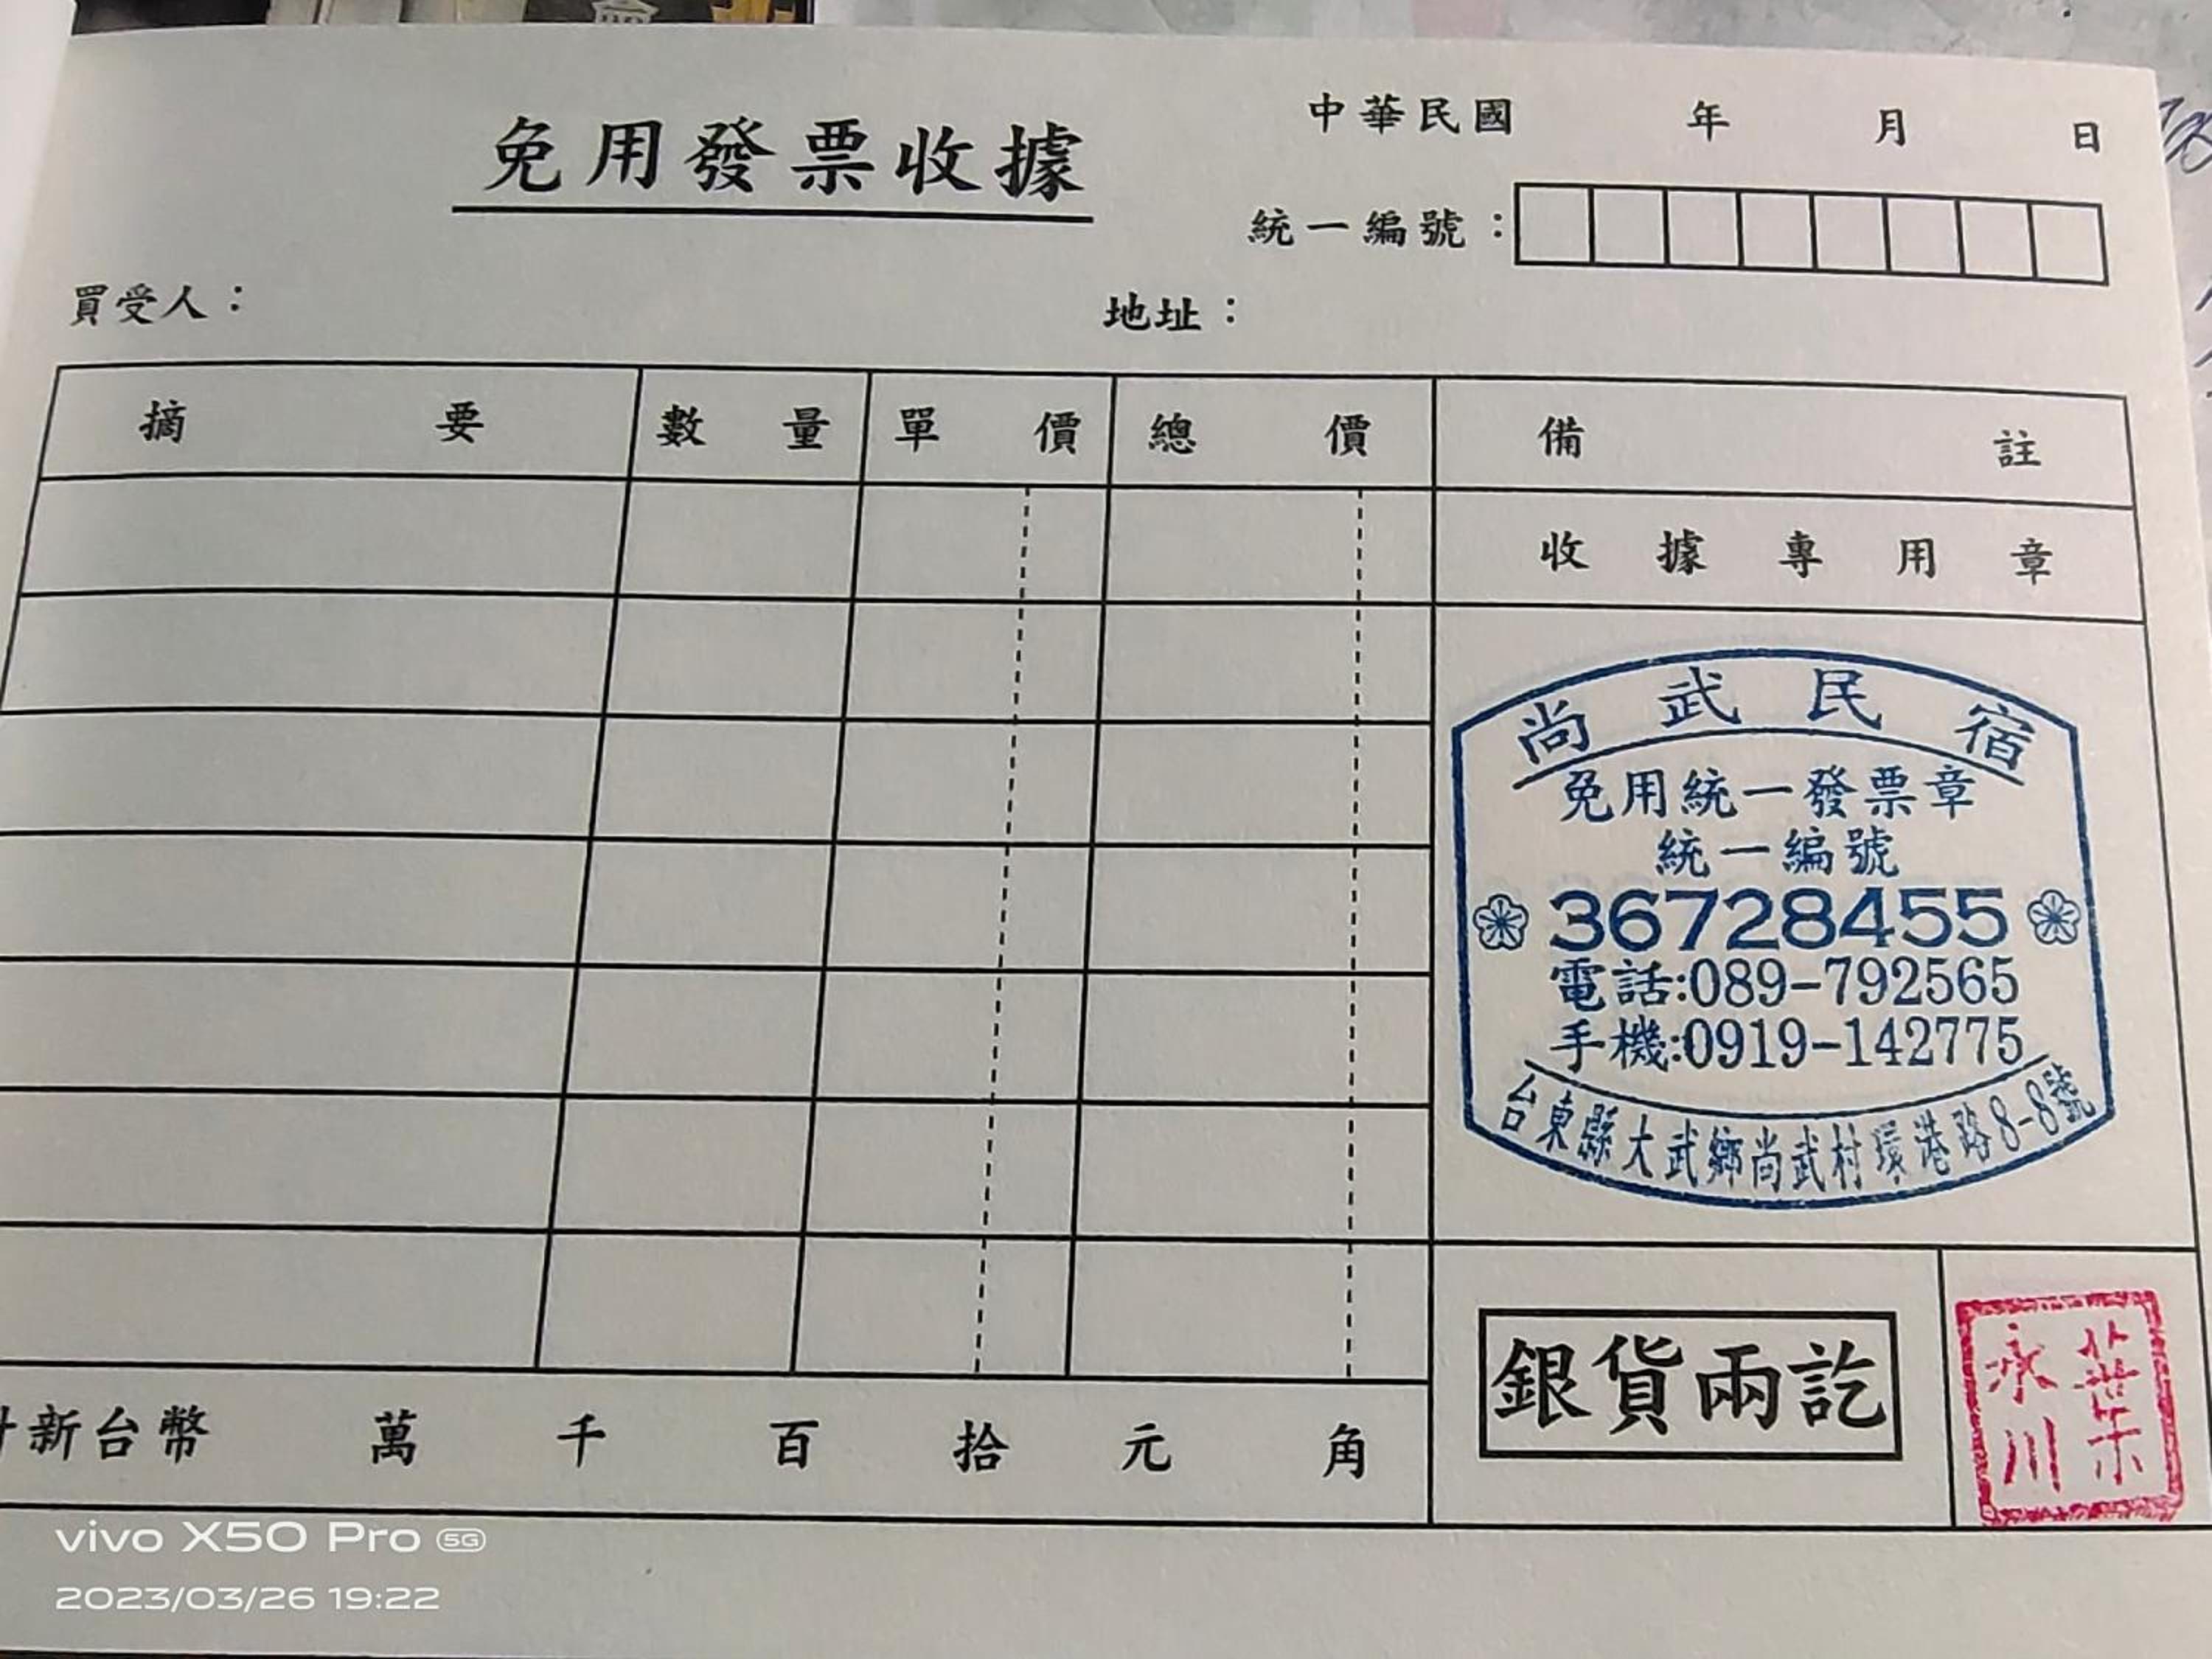 免用發票收據
中華民國 年 月 日
統一編號：
買受人： 地址：
摘要 數量 單價 總價 備註
收據專用章
尚武民宿
免用統一發票章
統一編號
36728455
電話:089-792565
手機:0919-142775
台東縣大武鄉尚武村環港路8-8號
新台幣 萬 千 百 拾 元 角
銀貨兩訖
葉永川
vivo X50 Pro 5G
2023/03/26 19:22